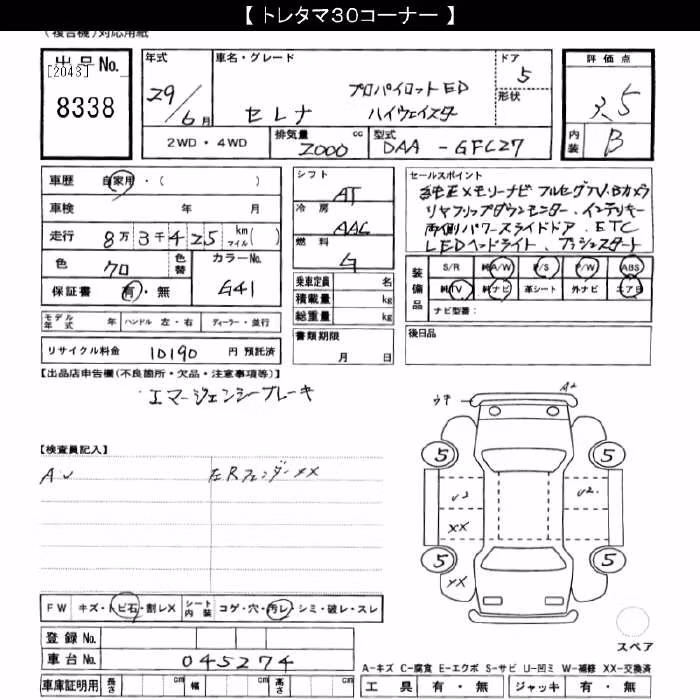 【 トレタマ30コーナー 】
(複合機)対応用紙
出品No.
[2043]
8338
年式
29/6月
車名・グレード
プロパイロットED
セレナ ハイウェイスター
ドア
5
形状
評価点
3.5
内装
B
2WD・4WD
排気量 cc
2000
型式
DAA - GFC27
車歴 自家用・( )
車検 年 月
走行 8万3千425 km マイル( )
色 クロ 色替
カラーNo. G41
保証書 有・無
モデル年式 年 ハンドル 左・右 ディーラー・並行
リサイクル料金 10190 円 預託済
シフト
AT
冷房
AAC
燃料
G
乗車定員 名
積載量 kg
総重量 kg
書類期限
月 日
セールスポイント
純正メモリーナビ フルセグTV.Bカメラ
リヤフリップダウンモニター. インテリキー
両側パワースライドドア. ETC
LEDヘッドライト. プッシュスタート
装備品
S/R 純A/W P/S P/W ABS
純TV 純ナビ 革シート 外ナビ エアB
ナビ型番:
後日品
【出品店申告欄(不良箇所・欠品・注意事項等)】
エマージェンシーブレーキ
【検査員記入】
左Rフェンダーxx
A2
5
5
U2
U2.
XX
5
5
XX
スペア
FW キズ・トビ石・割レX シート内装 コゲ・穴・汚レ・シミ・破レ・スレ
登録No.
車台No. 045274
車庫証明用 長さ cm 幅 cm 高さ cm
A-キズ C-腐食 E-エクボ S-サビ U-凹ミ W-補修 XX-交換済
工具 有・無 ジャッキ 有・無